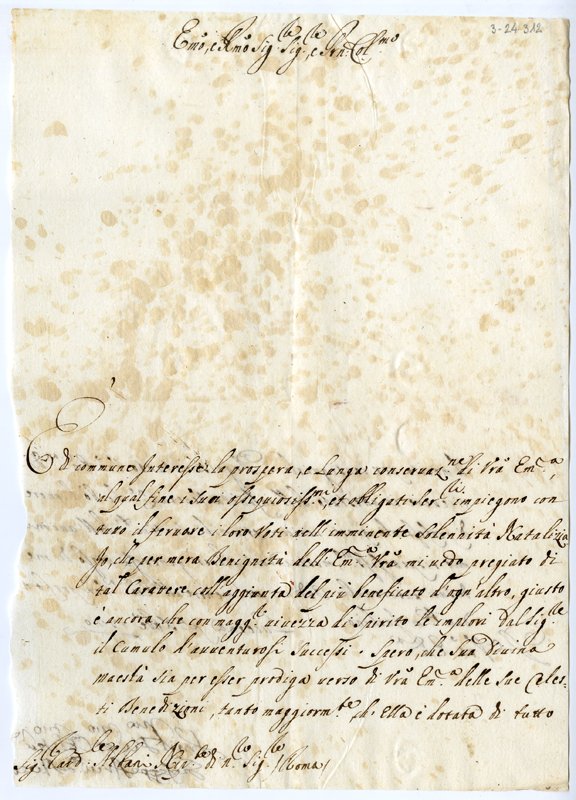 3-24-312
Em̃o, e Rm̃o Sig.re Sig.re, e Prñ. Col.mo
È di commune Interesse la prospera, e lunga conservaz.ne di Vr̃a Em.a,
al qual fine i suoi ossequiosiss.mi, et obligati Ser.ri impiegono con
tutto il fervore i loro Voti nell'imminente Solennità Natalizia
Io, che per mera Benignità dell'Em.a Vr̃a mi vedo pregiato di
tal Carattere coll'aggiunta del più beneficato d'ogn'altro, giusto
è ancora, che con magg.r vivezza di Spirito le implori dal Sig.re
il Cumulo d'avventurosi successi. Spero, che Sua Divina
Maestà sia per esser prodiga verso di Vr̃a Em.a delle sue Celes-
ti Benedizioni, tanto maggiorm.te, ch'Ella è dotata di tutto
Sig. Card. Albani di n.ro Sig.re / Roma /